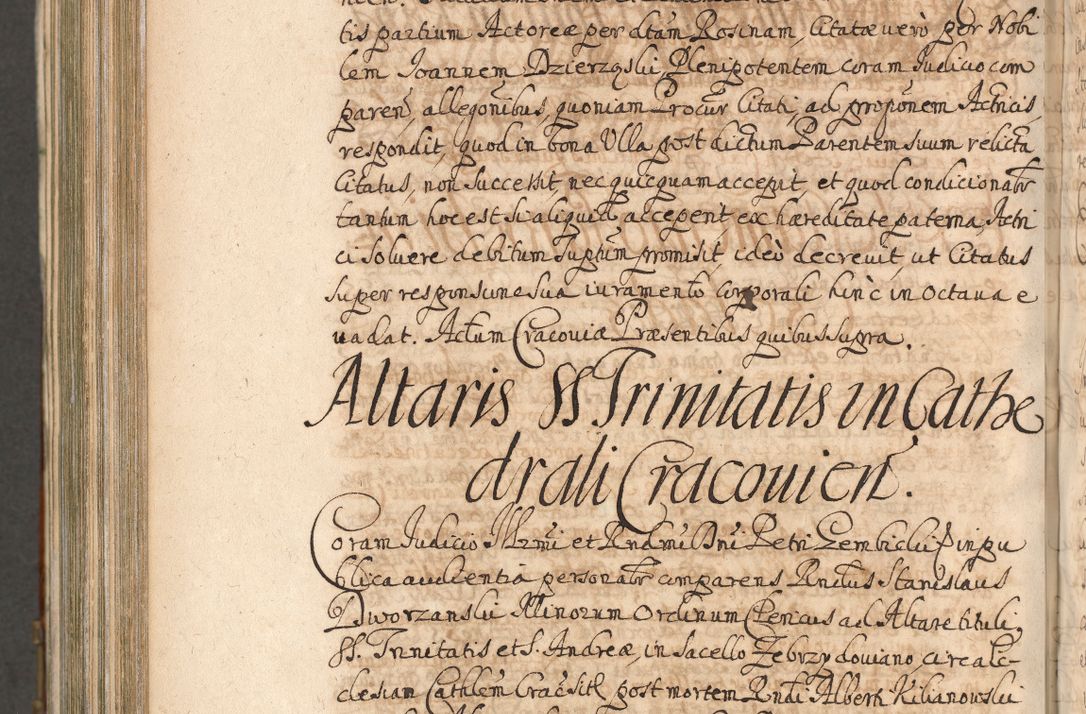 tis partium Actoreæ per dtam Rosinam, Citatæ verò per Nobi
lem Joannem Dzierzqski, Plenipotentem coram Iudicio com
paren, allegonibus, quoniam Procur Citati, ad proponem Actricis,
respondit, quod in bona Ulla post dictum Parentem suum relicta
Citatus, non Successit, nec quicquam accepit, et quod condicionatr
tantum hoc est si aliquid acceperit, ex hæreditate paterna, Actri
ci Soluere debitum suptum promisit, ideò decreuit, ut Citatus
super responsione sua iuramento corporali hinc in Octaua e
uadat. Actum Cracouiæ Præsentibus quibus supra.
Altaris SS Trinitatis in Cathe
drali Cracouien.
Coram Iudicio Illrmi et Rndmi Dni Petri Gembicki P in pu
blica audientia personatr comparens Rndus Stanislaus
Dworzanski Minorum Ordinum Clericus ad Altare tituli
SS. Trinitatis et S. Andreæ, in Sacello Zebrzydouiano, circa Ec-
clesiam Cathlem Crac sitk post mortem Rndi Alberti Kilianowski